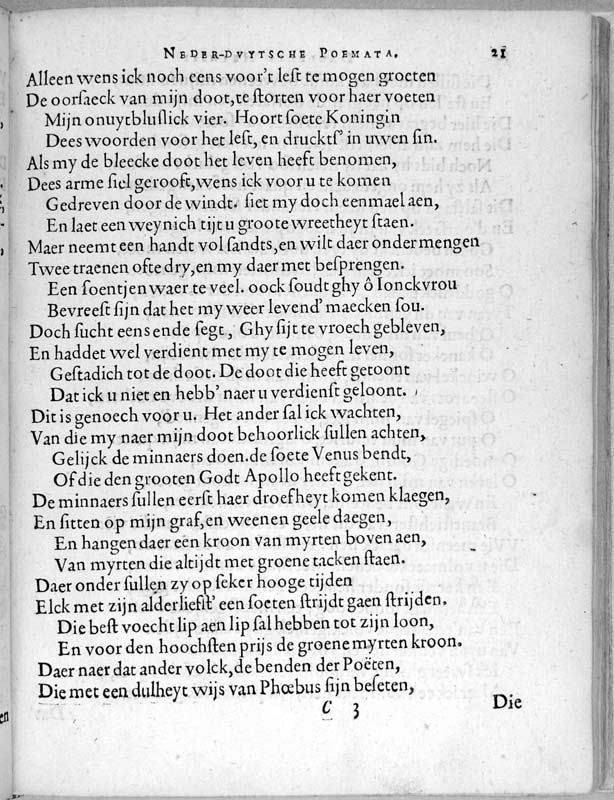 NEDER-DVYTSCHE POEMATA. 21
Alleen wens ick noch eens voor't lest te mogen groeten
De oorsaeck van mijn doot, te storten voor haer voeten
Mijn onuytbluslick vier. Hoort soete Koningin
Dees woorden voor het lest, en druckts' in uwen sin.
Als my de bleecke doot het leven heeft benomen,
Dees arme siel gerooft, wens ick voor u te komen
Gedreven door de windt. siet my doch eenmael aen,
En laet een weynich tijt u groote wreetheyt staen.
Maer neemt een handt vol sandts, en wilt daer onder mengen
Twee traenen ofte dry, en my daer met besprengen.
Een soentjen waer te veel. oock soudt ghy ô Ionckvrou
Bevreest sijn dat het my weer levend' maecken sou.
Doch sucht eens ende segt, Ghy sijt te vroech gebleven,
En haddet wel verdient met my te mogen leven,
Gestadich tot de doot. De doot die heeft getoont
Dat ick u niet en hebb' naer u verdienst geloont.
Dit is genoech voor u. Het ander sal ick wachten,
Van die my naer mijn doot behoorlick sullen achten,
Gelijck de minnaers doen. de soete Venus bendt,
Of die den grooten Godt Apollo heeft gekent.
De minnaers sullen eerst haer droefheyt komen klaegen,
En sitten op mijn graf, en weenen geele daegen,
En hangen daer een kroon van myrten boven aen,
Van myrten die altijdt met groene tacken staen.
Daer onder sullen zy op seker hooge tijden
Elck met zijn alderliefst' een soeten strijdt gaen strijden.
Die best voecht lip aen lip sal hebben tot zijn loon,
En voor den hoochsten prijs de groene myrten kroon.
Daer naer dat ander volck, de benden der Poëten,
Die met een dulheyt wijs van Phœbus sijn beseten,
C 3 Die